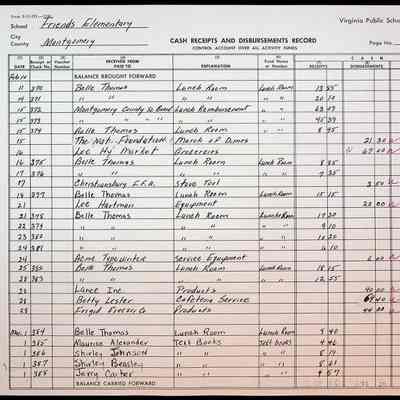 School Friends Elementary
City
County Montgomery
Virginia Public School
CASH RECEIPTS AND DISBURSEMENTS RECORD
CONTROL ACCOUNT OVER ALL ACTIVITY FUNDS
Page No.
CASH
DATE Receipt or Check No. Voucher Number RECEIVED FROM PAID TO EXPLANATION Fund Name or Number RECEIPTS DISBURSEMENTS
Feb BALANCE BROUGHT FORWARD
11 370 Belle Thomas Lunch Room Lunch Room 13 85
14 371 " " " " " 20 10
15 372 Montgomery County Sc. Board Lunch Reimbursement " 63 49
15 373 " " " " " " 45 39
15 374 Belle Thomas Lunch Room " 8 45
15 The Nat. Foundation March of Dimes 21 30
16 Lee Hy Market Groceries 69 00
16 375 Belle Thomas Lunch Room Lunch Room 8 85
17 376 " " " " " 7 35
17 Christiansburg F.F.A. Stove Tool 3 50
18 377 Belle Thomas Lunch Room Lunch Room 15 15
21 Lee Hartman Equipment 22 00
21 378 Belle Thomas Lunch Room Lunch Room 17 20
22 379 " " " " " 9 10
23 380 " " " " " 10 20
24 381 " " " " " 6 10
24 Acme Typewriter Service Equipment 6 00
25 382 Belle Thomas Lunch Room Lunch Room 18 15
28 383 " " " " " 12 55
28 Lance Inc Products 40 00
28 Betty Lester Cafeteria Service 69 40
28 Frigid Freeze Co Products 44 00
Mar. 1 384 Belle Thomas Lunch Room Lunch Room 8 40
1 385 Maurice Alexander Text Books Text Books 4 46
1 386 Shirley Johnson " " " " 8 19
1 387 Shirley Beasley " " " " 8 61
1 388 Jerry Carter " " " " 4 57
BALANCE CARRIED FORWARD